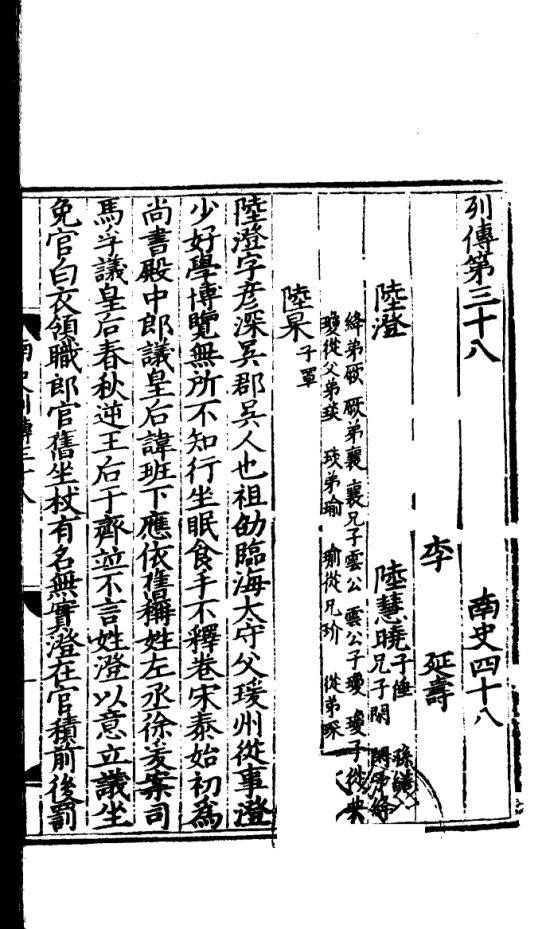 列傳第三十八 南史四十八
李 延壽
陸澄 陸慧曉 子倕 孫繕 兄子閑 閑弟絳
絳弟厥 厥弟襄 襄兄子雲公 雲公子瓊 瓊子從典
瓊從父弟琰 琰弟瑜 瑜從兄玠 從弟琛
陸杲 子罩
陸澄字彥深吳郡吳人也祖劭臨海太守父瑗州從事澄
少好學博覽無所不知行坐眠食手不釋卷宋泰始初為
尚書殿中郎議皇后諱班下應依舊稱姓左丞徐爰案司
馬孚議皇后春秋逆王后于齊並不言姓澄以意立議坐
免官白衣領職郎官舊坐杖有名無實澄在官積前後罰
南史列傳三十八